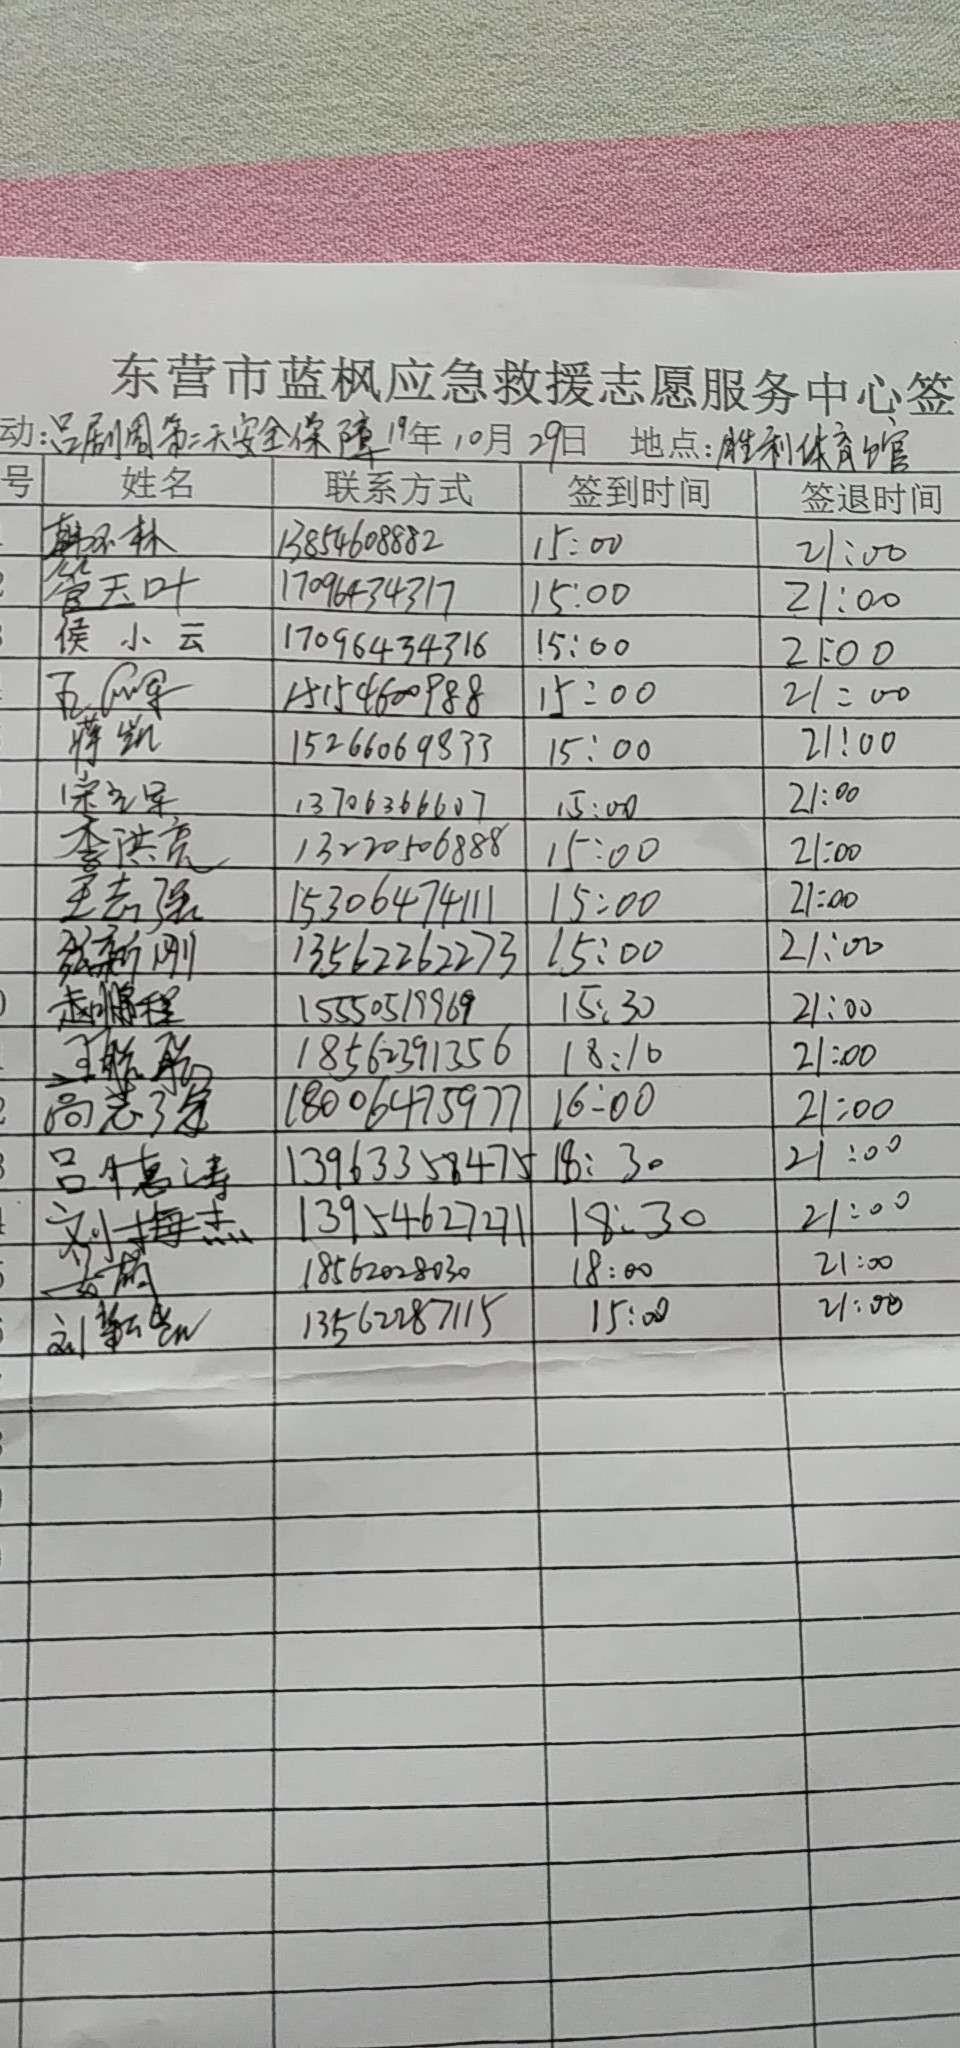 东营市蓝枫应急救援志愿服务中心签
动:吕剧周第二天安全保障 19年 10月 29日 地点:胜利体育馆
号 姓名 联系方式 签到时间 签退时间
林 13854608882 15:00 21:00
2 管玉叶 17096434317 15:00 21:00
3 侯小云 17096434316 15:00 21:00
15154600988 15:00 21:00
蒋凯 15266069833 15:00 21:00
宋 军 13706366607 15:00 21:00
李洪亮 13220506888 15:00 21:00
王志强 15306474111 15:00 21:00
张新刚 13562262273 15:00 21:00
0 赵鹏程 15550519969 15:30 21:00
王 18562391356 18:10 21:00
2 尚志强 18006475977 16:00 21:00
3 吕 涛 13963358475 18:30 21:00
4 刘梅杰 13954627271 18:30 21:00
5 18562028030 18:00 21:00
6 刘 13562287115 15:00 21:00